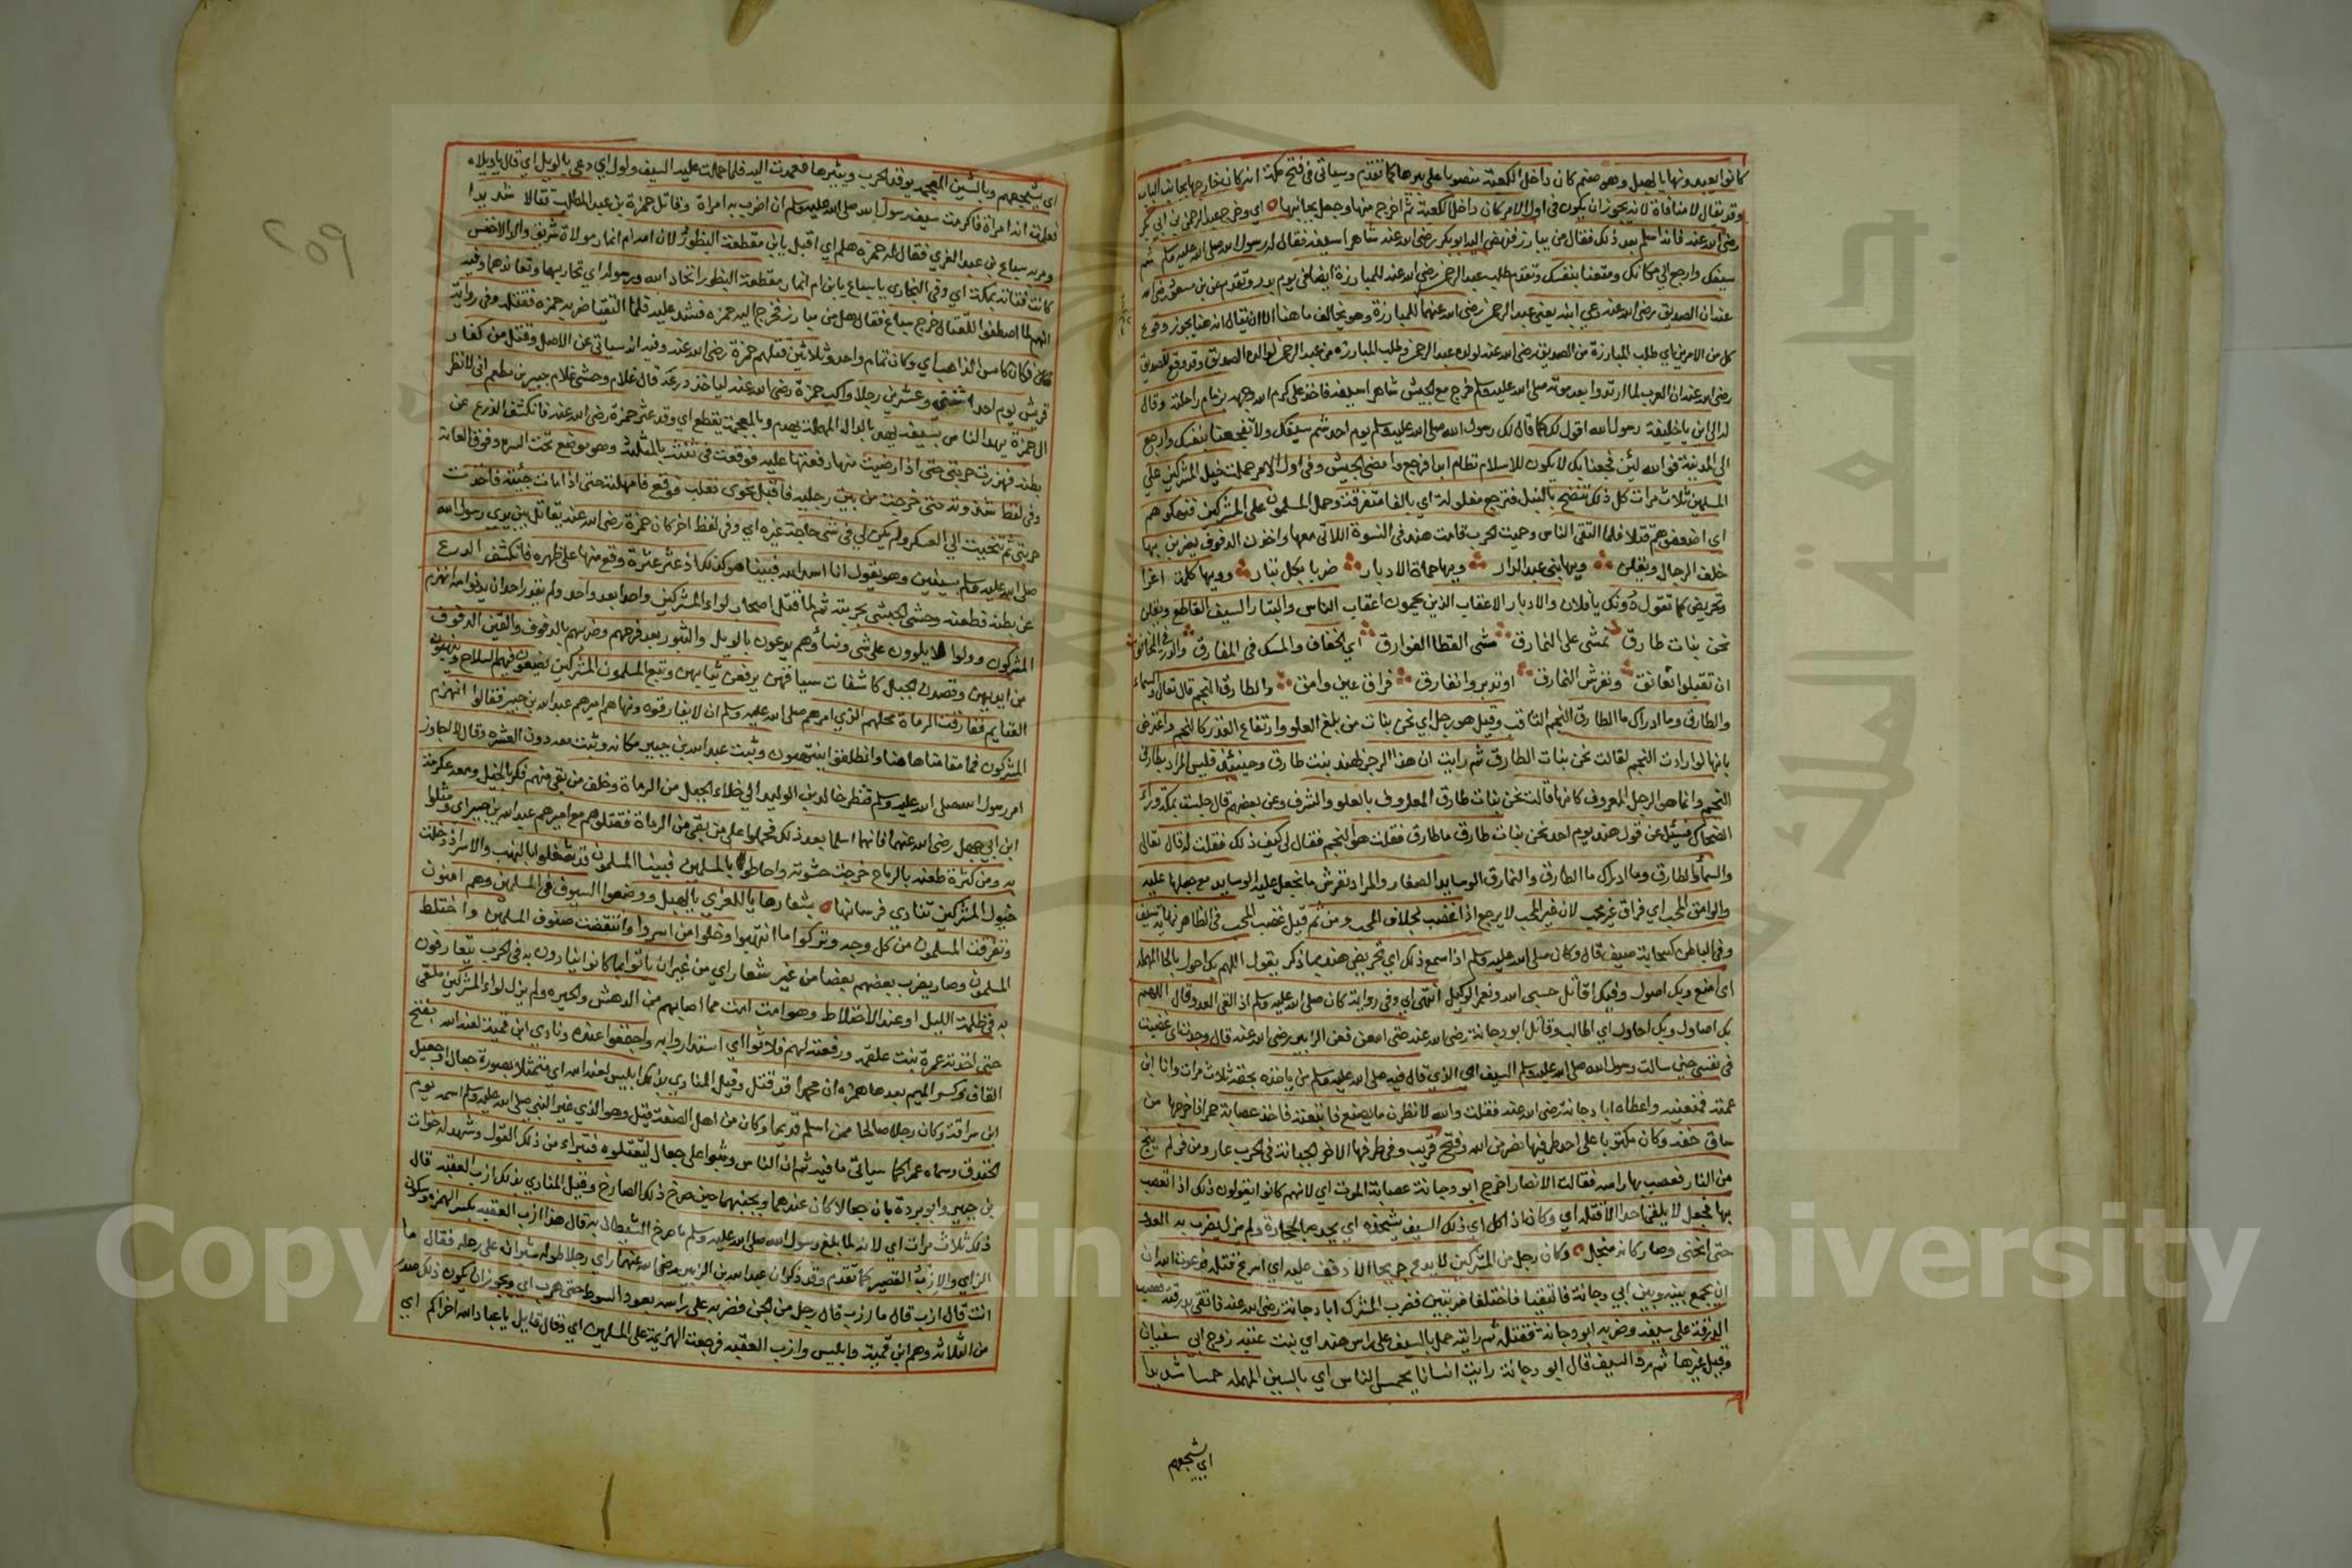 كانوا يعبدونها يا لهبل وهو صنم كان داخل الكعبة منصوبا على بئرها كما تقدم وسياتي في فتح مكة انه كان خارجها بجانب الباب
وقد يقال لا منافاة لانه يجوز ان يكون في اول الامر كان داخل الكعبة ثم اخرج منها وجعل بجانبها اي وخرج عبد الرحمن بن ابي بكر
رضي الله عنه فانه اسلم بعد ذلك فقال من يبارز فنهض اليه ابو بكر رضي الله عنه شاهرا سيفه فقال له رسول الله صلى الله عليه وسلم شم
سيفك وارجع الى مكانك ومتعنا بنفسك وتقدم طلب عبد الرحمن رضي الله عنه للمبارزة ايضا في يوم بدر وتقدم عن بن مسعود رضي الله
عنه ان الصديق رضي الله عنه دعي ابنه يعني عبد الرحمن رضي الله عنهما للمبارزة وهو يخالف ما هنا الا ان يقال انه هنا يجوز وقوع
كل من الامرين اي طلب المبارزة من الصديق رضي الله عنه لولده عبد الرحمن وطلب المبارزه من عبد الرحمن لوالده الصديق وقد وقع للصديق
رضي الله عنه ان العرب لما ارتدوا بعد موته صلى الله عليه وسلم خرج مع الجيش شاهرا سيفه فاخذ علي كرم الله وجهه بزمام راحلته وقال
له الى اين يا خليفة رسول الله اقول لك كما قال لك رسول الله صلى الله عليه وسلم يوم احد شم سيفك ولا تفجعنا بنفسك وارجع
الى المدينة فوالله لئن فجعنا بك لا يكون للاسلام نظام ابدا فرجع وامضى الجيش وفي اول الامر حملت خيل المشركين على
المسلمين ثلاث مرات كل ذلك تنضح بالنبل فترجع مفلولة اي بالفا متفرقة وحمل المسلمون على المشركين فنهكوهم
اي اضعفوهم قتلا فلما التقى الناس وحميت الحرب قامت هند في النسوة اللاتي معها واخذن الدفوف يضربن بها
خلف الرجال ويقلن ويها بني عبد الدار ويها حماة الادبار ضربا بكل بتار وويها كلمة اغرا
وتحريض كما تقول دونك يا فلان والادبار الاعقاب الذين يحمون اعقاب الناس والبتار السيف القاطع ويقلن
نحن بنات طارق نمشي على النمارق مشي القطا الفوارق اي الخفاف والمسك في المفارق والدر في المخانق
ان تقبلوا نعانق ونفرش النمارق او تدبروا نفارق فراق غير وامق والطارق النجم قال تعالى والسماء
والطارق وما ادراك ما الطارق النجم الثاقب وقيل هو رجل اي نحن بنات من بلغ العلو وارتفاع القدر كالنجم واعترض
بانها لو ارادت النجم لقالت نحن بنات الطارق ثم رايت ان هذا الرجز لهند بنت طارق وحينئذ فليس المراد بطارق
النجم وانما هو الرجل المعروف كانها قالت نحن بنات طارق المعروف بالعلو والشرف وعن بعضهم قال جلست بمكة وراء
الضحاك فسئل عن قول هند يوم احد نحن بنات طارق ما طارق فقلت هو النجم فقال لي كيف ذلك فقلت له قال تعالى
والسماء والطارق وما ادراك ما الطارق والنمارق الوسايد الصغار والمراد نفرش ما تجعل عليه الوسايد مع جعلها عليه
والوامق المحب اي فراق غير محب لان غير المحب لا يرجع اذا غضب بخلاف المحب ومن ثم قيل غضب المحب في الظاهر نهاية سيف
وفي الباطن كسحابة صيف قال وكان صلى الله عليه وسلم اذا سمع ذلك اي تحريض هند بما ذكر يقول اللهم بك احول بالحا المهملة
اي امنع وبك اصول وفيك اقاتل حسبي الله ونعم الوكيل انتهى اي وفي رواية كان صلى الله عليه وسلم اذا لقى العدو قال اللهم
بك اصاول وبك احاول اي اطالب وقاتل ابو دجانة رضي الله عنه حتى امعن فعن الزبير رضي الله عنه قال وجدت اي غضبت
في نفسي حين سالت رسول الله صلى الله عليه وسلم السيف اي الذي قال فيه صلى الله عليه وسلم من ياخذه بحقه ثلاث مرات وانا ابن
عمته فمنعنيه واعطاه ابا دجانة رضي الله عنه فقلت والله لانظرن ما يصنع فاتبعته فاخذ عصابة حمرا اخرجها من
ساق خفه وكان مكتوبا على احد طرفيها نصر من الله وفتح قريب وفي طرفها الاخر الجبانة في الحرب عار ومن فر لم ينج
من النار فعصب بها راسه فقالت الانصار اخرج ابو دجانة عصابة الموت اي لانهم كانوا يقولون ذلك اذا تعصب
بها فجعل لا يلقى احدا الا قتله اي وكان اذا كل اي ذلك السيف يشحذه اي يحده بالحجارة ولم يزل يضرب به العدو
حتى انحنى وصار كانه منجل وكان رجل من المشركين لا يدع جريحا الا ذفف عليه اي اسرع قتله فدعوت الله ان
ان يجمع بينه وبين ابي دجانة فالتقيا فاختلفا ضربتين فضرب المشرك ابا دجانة رضي الله عنه فاتقى بدرقته فعضت
الدرقة على سيفه وضربه ابو دجانة فقتله ثم رايته حمل بالسيف على راس هند اي بنت عتبة زوج ابي سفيان
وقيل غيرها ثم رد السيف قال ابو دجانة رايت انسانا يحمس الناس اي بالسين المهملة حمسا شديدا
اي يشجعهم
٢٥٩
اي يشجعهم وبالشين المعجمة يوقد الحرب ويثيرها فعمدت اليه فلما حملت عليه السيف ولول اي دعى بالويل اي قال يا ويلاه
فعلمت انه امراة فاكرمت سيف رسول الله صلى الله عليه وسلم ان اضرب به امراة وقاتل حمزة بن عبد المطلب قتالا شديدا
ومر به سباع بن عبد العزي فقال له حمزه هلم اي اقبل يا بن مقطعة البظور لان امه ام انمار مولاة شريق والد الاخنس
كانت ختانة بمكة اي وفي البخاري يا سباع يا بن ام انمار مقطعة البظور اتحاد الله ورسوله اي تحاربهما وتعاندهما وفيه
انهم لما اصطفوا للقتال خرج سباع فقال هل من مبارز فخرج اليه حمزه فشد عليه فلما التقيا ضربه حمزه فقتله وفي رواية
فكان كامس الذاهب اي وكان تمام واحد وثلاثين قتلهم حمزة رضي الله عنه وفيه انه سياتي عن الاصل وقتل من كفار
قريش يوم احد ثلثة وعشرين رجلا واكب حمزة رضي الله عنه لياخذ درعه قال غلام وحشي غلام جبير بن مطعم اني لانظر
الى حمزة يهد الناس بسيفه يهد بالدال المهملة يهدم وبالمعجمة يقطع اي وقد عثر حمزة رضي الله عنه فانكشف الدرع عن
بطنه فهززت حربتي حتى اذا رضيت منها دفعتها عليه فوقعت في ثنته بالمثلثة وهو موضع تحت السره وفوق العانة
وفي لفظ ثندوته حتى خرجت من بين رجليه فاقبل نحوي فغلب فوقع فامهلته حتى اذا مات جئته فاخذت
حربتي ثم تنحيت الى العسكر ولم يكن لي في شي حاجة غيره اي وفي لفظ اخر كان حمزة رضي الله عنه يقاتل بين يدي رسول الله
صلى الله عليه وسلم بسيفين وهو يقول انا اسد الله فبينما هو كذلك اذ عثر عثرة وقع منها على ظهره فانكشف الدرع
عن بطنه فطعنه وحشي الحبشي بحربته ثم لما قتل اصحاب لواء المشركين واحدا بعد واحد ولم يقدر احد ان يدنوا منه انهزم
المشركون وولوا لا يلوون على شي ونساؤهم يدعون بالويل والثبور بعد فرحهم وضربهم بالدفوف والقين الدفوف
من ايديهن وقصدن الجبل كاشفات سيقانهن يرفعن ثيابهن وتبع المسلمون المشركين يضعون فيهم السلاح وينهبون
الغنايم ففارقت الرماة محلهم الذي امرهم صلى الله عليه وسلم ان لا يفارقوه ونهاهم اميرهم عبد الله بن جبير فقالوا انهزم
المشركون فما مقامنا هاهنا وانطلقوا ينتهبون وثبت عبد الله بن جبير مكانه وثبت معه دون العشرة وقال لا اجاوز
امر رسول الله صلى الله عليه وسلم فنظر خالد بن الوليد الى خلاء الجبل من الرماة وخلف من بقي منهم فكر بالخيل ومعه عكرمة
ابن ابي جهل رضي الله عنهما فانهما اسلما بعد ذلك فحملوا على من بقي من الرماة فقتلوهم مع اميرهم عبد الله بن جبير اي ومثلوا
به ومن كثرة طعنه بالرماح خرجت حشوته واحاطوا بالمسلمين فبينما المسلمون قد شغلوا بالنهب والاسر اذ دخلت
خيول المشركين تنادي فرسانها بشعارها يا للعزي يا لهبل ووضعوا السيوف في المسلمين وهم امنون
وتفرقت المسلمون من كل وجه وتركوا ما انتهبوا وخلوا من اسروا وانتقضت صفوف المسلمين واختلط
المسلمون وصار يضرب بعضهم بعضا من غير شعار اي من غير ان ياتوا بما كانوا ينادون به في الحرب يتعارفون
به في ظلمة الليل او عند الاختلاط وهو امت امت مما اصابهم من الدهش والحيره ولم يزل لواء المشركين ملقى
حتى اخذته عمرة بنت علقمة ورفعته لهم فلاثوا اي استداروا به واجتمعوا عنده ونادى ابن قمئة لعنه الله بفتح
القاف وكسر الميم بعدها همزه ان محمدا قد قتل وقيل المنادي بذلك ابليس لعنه الله اي متمثلا بصورة جعال او جعيل
ابن سراقة وكان رجلا صالحا ممن اسلم قديما وكان من اهل الصفة قيل وهو الذي غير النبي صلى الله عليه وسلم اسمه يوم
الخندق وسماه عمرا كما سياتي ما فيه ثم ان الناس وثبوا على جعال ليقتلوه فتبراء من ذلك القول وشهد له خوات
بن جبير وابو بردة بان جعالا كان عندهما وبجنبهما حين صرخ ذلك الصارخ وقيل المنادي بذلك ازب العقبة قال
ذلك ثلاث مرات اي لانه لما بلغ رسول الله صلى الله عليه وسلم ما صرخ الشيطان به قال هذا ازب العقبة بكسر الهمزة وسكون
الزاي والازب القصير كما تقدم وقد ذكر ان عبد الله بن الزبير رضي الله عنهما راى رجلا طوله شبران على رحله فقال ما
انت قال ازب قال ما ازب قال رجل من الجن فضربه على راسه بعود السوط حتى هرب اي ويجوز ان يكون ذلك صدر
من الثلاثة وهم ابن قمئة وابليس وازب العقبة فرجعت الهزيمة على المسلمين اي وقال قايل يا عباد الله اخراكم اي
Copyright © King Saud University
جامعة الملك